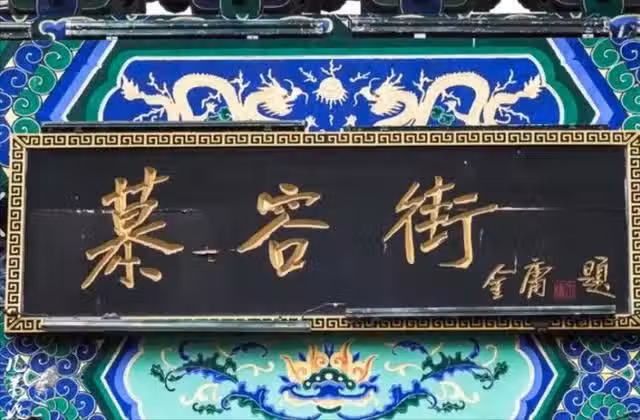 慕容街
金庸 題